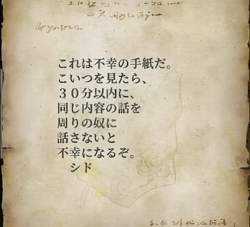 これは不幸の手紙だ。
こいつを見たら、
３０分以内に、
同じ内容の話を
周りの奴に
話さないと
不幸になるぞ。
シド